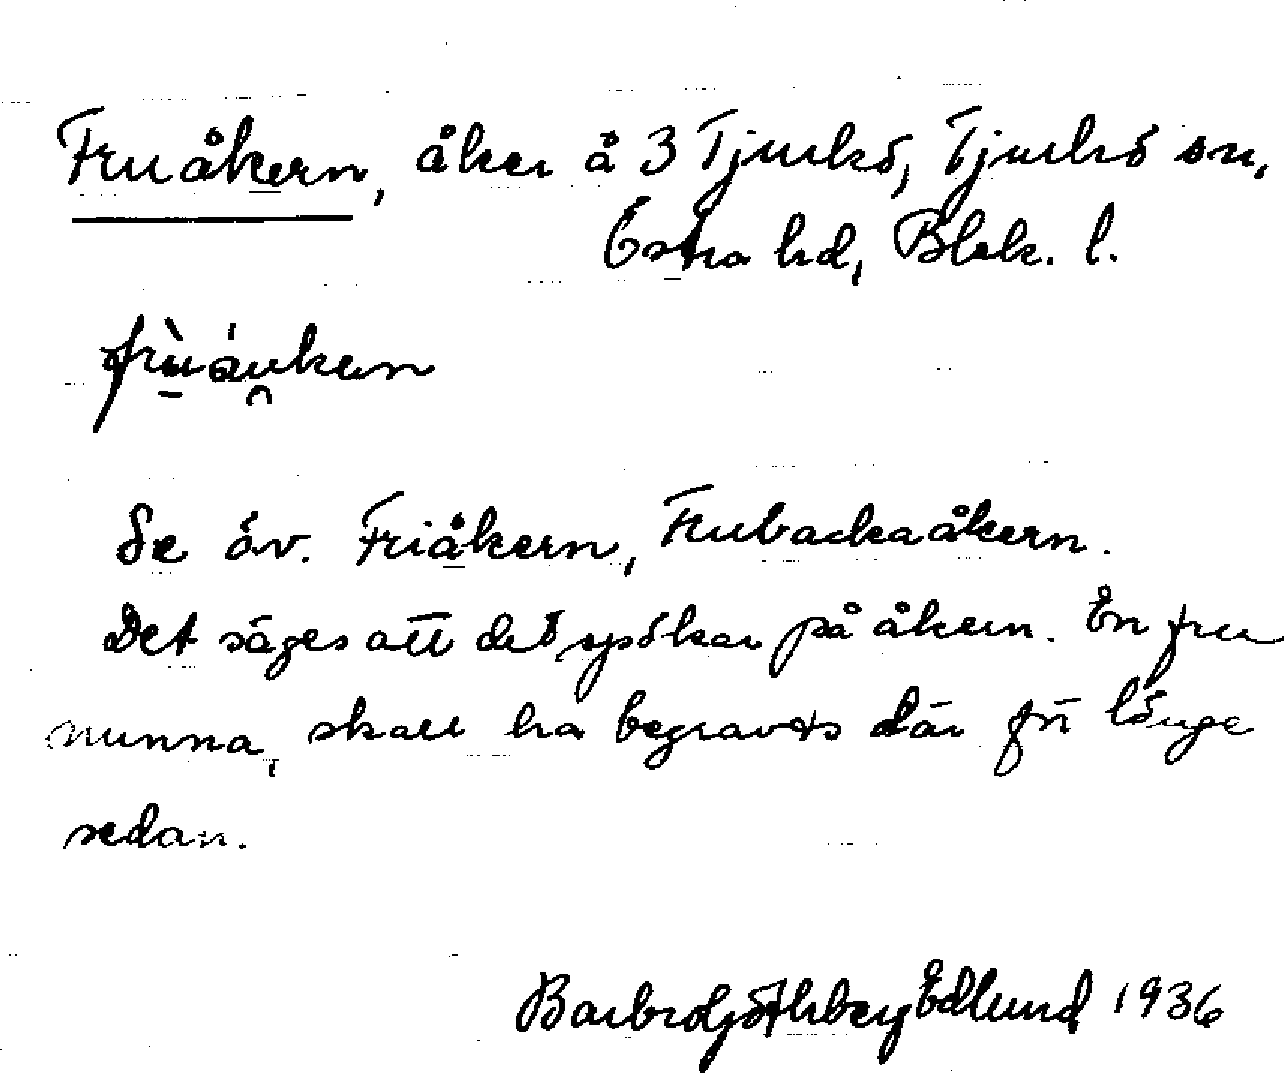 Fruåkern, åker å 3 Tjurkö, Tjurkö sn,
Östra hd, Blek. l.
frù̠áu̯kern
Se öv. Friåkern, Frubackaåkern.
Det säges att det spökar på åkern. En fru
nunna, skall ha begravts där för länge
sedan.
Barbro Göthberg Edlund 1936